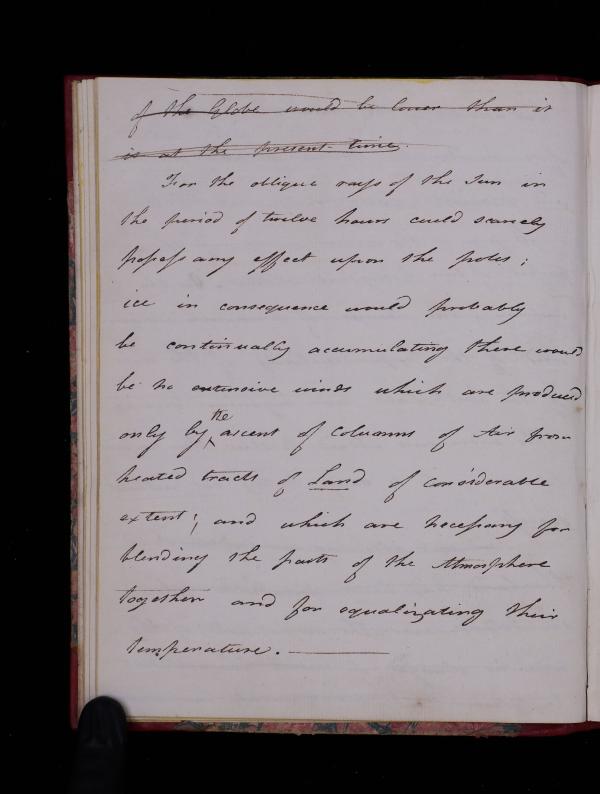 of the Globe would be lower than it
is at the present time.
For the oblique rays of the Sun in
the period of twelve hours could scarcely
possess any effect upon the poles;
ice in consequence would probably
be continually accumulating there would
be no extensive winds which are produced
only by the ascent of Columns of Air from
heated tracts of Land of considerable
extent; and which are necessary for
blending the parts of the Atmosphere
together and for equalizating their
temperature.